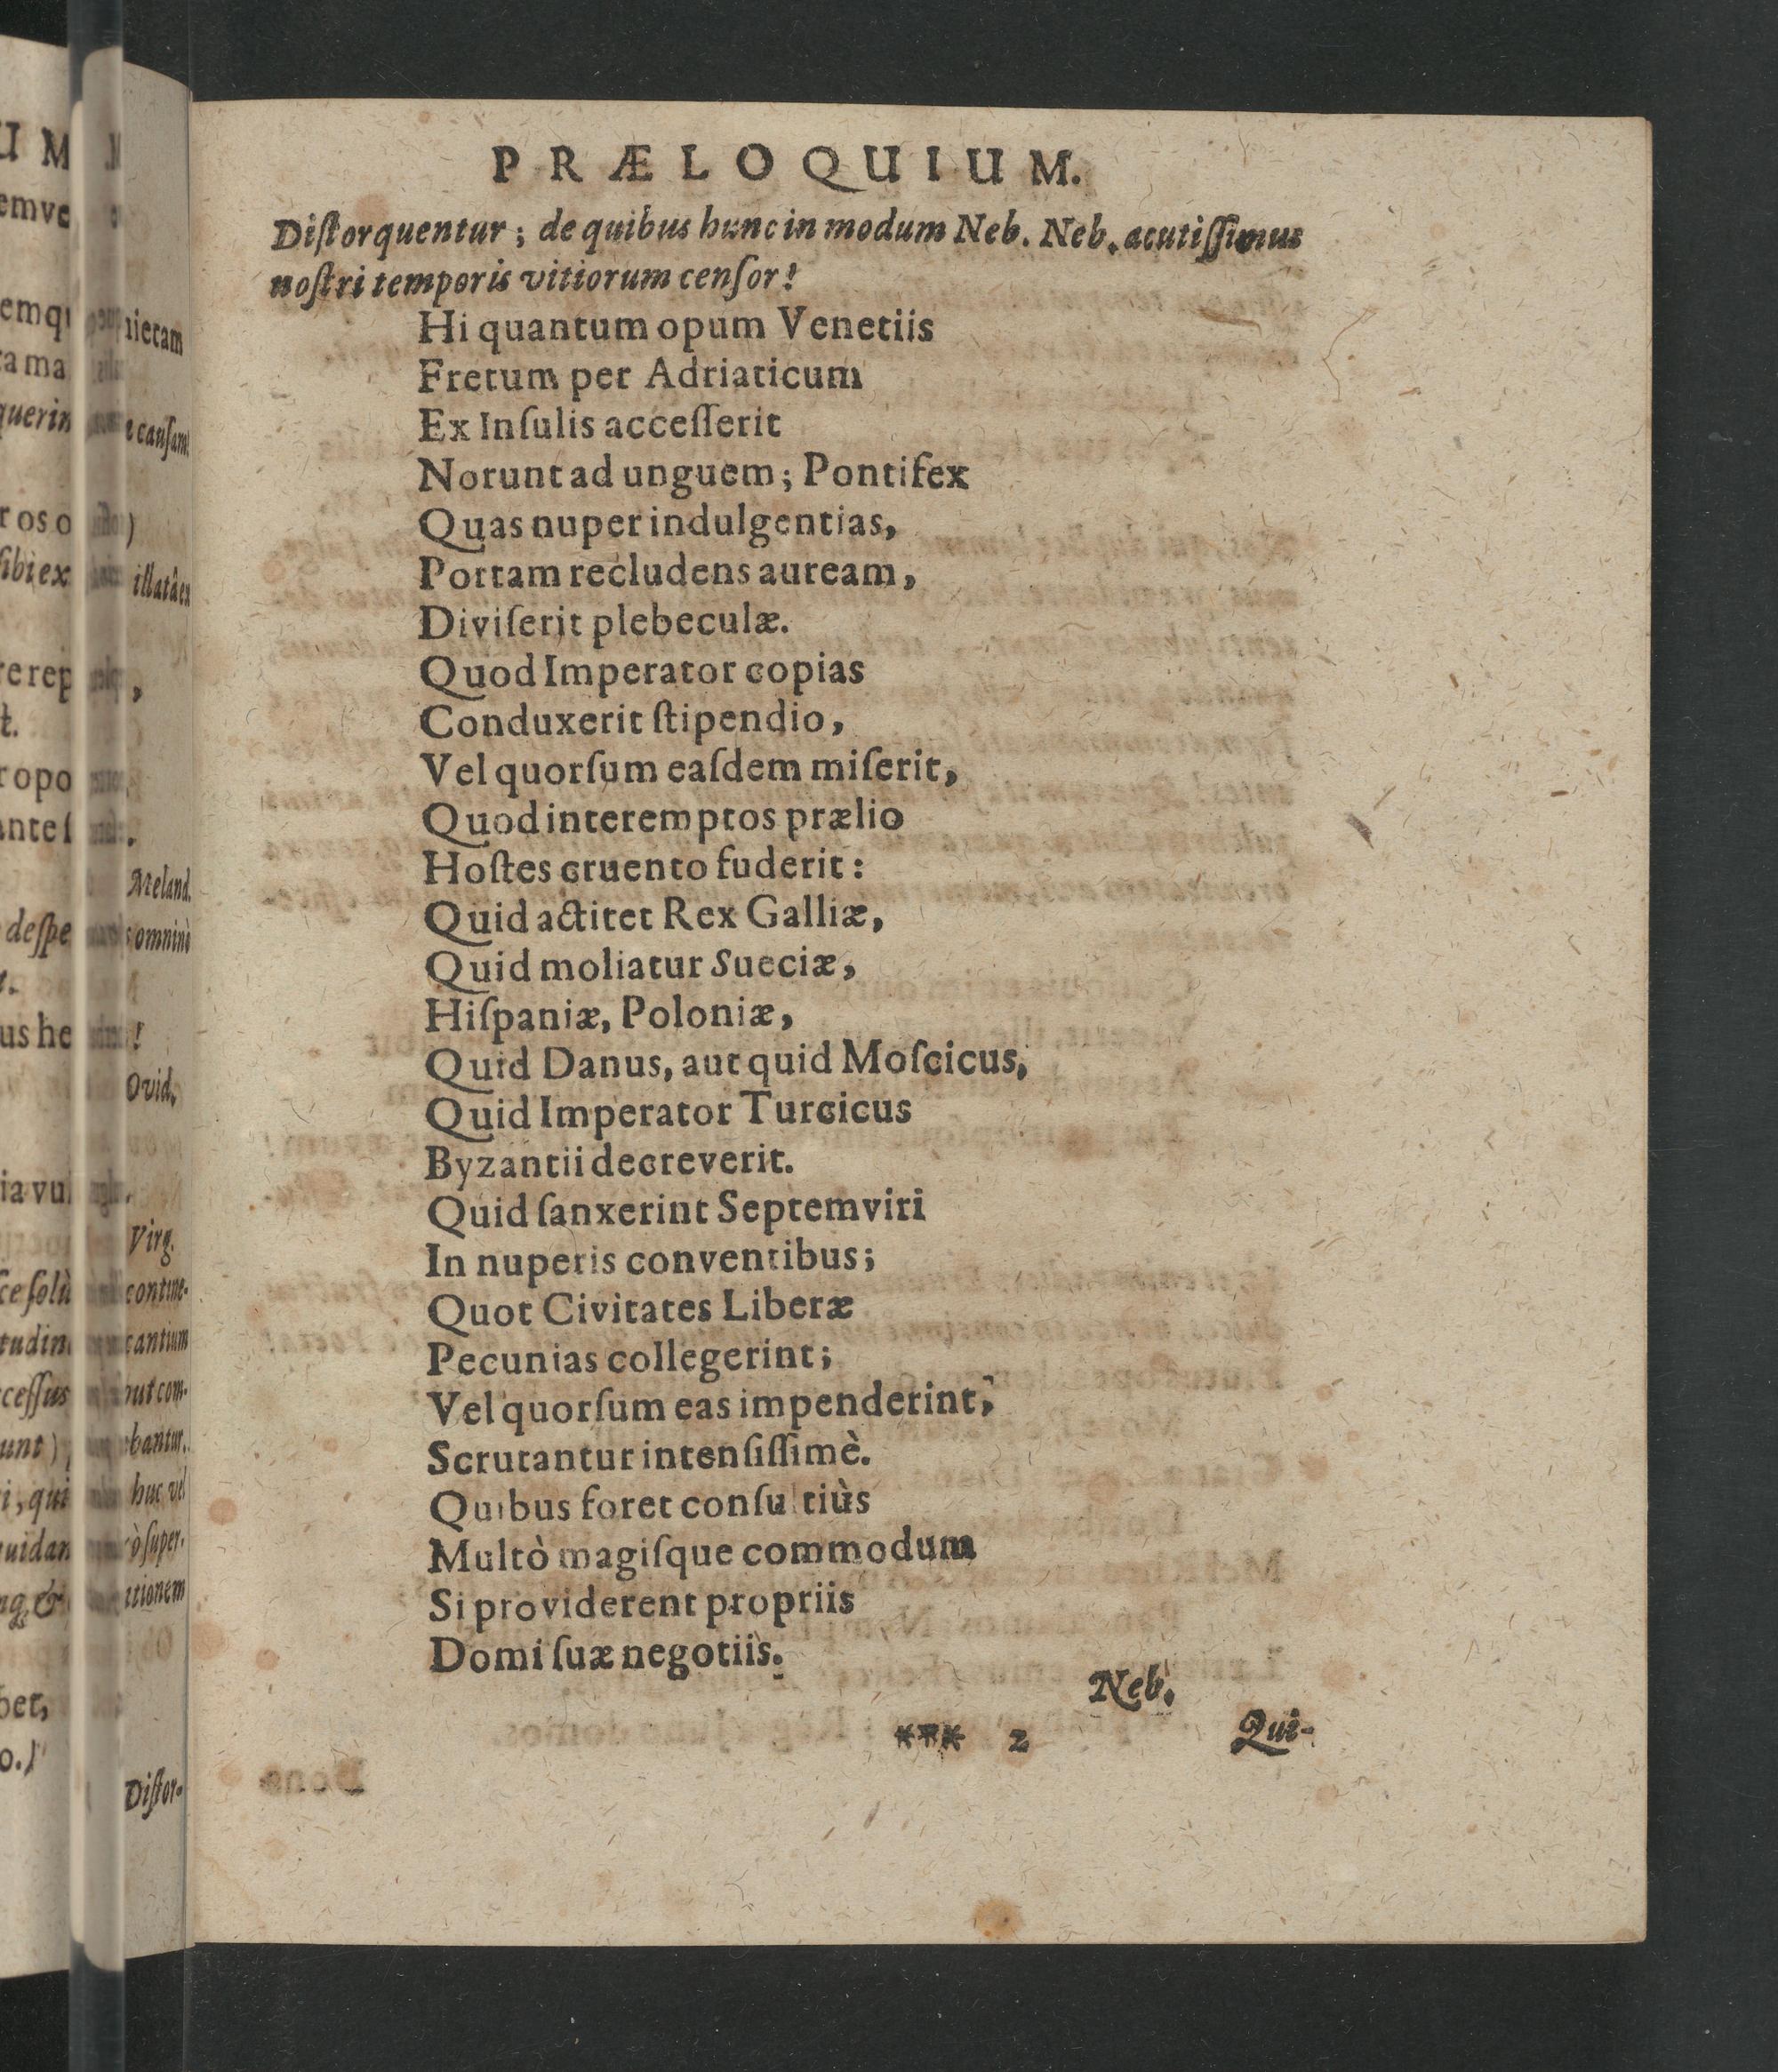 PRÆLOQUIUM.
Diſtorquentur; de quibus hunc in modum Neb. Neb. acutiſſimus
noſtri temporis vitiorum cenſor!
Hi quantum opum Venetiis
Fretum per Adriaticum
Ex Inſulis acceſſerit
Norunt ad unguem; Pontifex
Quas nuper indulgentias,
Portam recludens auream,
Diviſerit plebeculæ.
Quod Imperator copias
Conduxerit ſtipendio,
Vel quorſum eaſdem miſerit,
Quod interemptos prælio
Hoſtes cruento fuderit:
Quid actitet Rex Galliæ,
Quid moliatur Sueciæ,
Hiſpaniæ, Poloniæ,
Quid Danus, aut quid Moſcicus,
Quid Imperator Turcicus
Byzantii decreverit.
Quid ſanxerint Septemviri
In nuperis conventibus;
Quot Civitates Liberæ
Pecunias collegerint;
Vel quorſum eas impenderint,
Scrutantur intenſiſſimè.
Quibus foret conſultiùs
Multò magiſque commodum
Si providerent propriis
Domi ſuæ negotiis.
Neb.
*** 2
Qui-